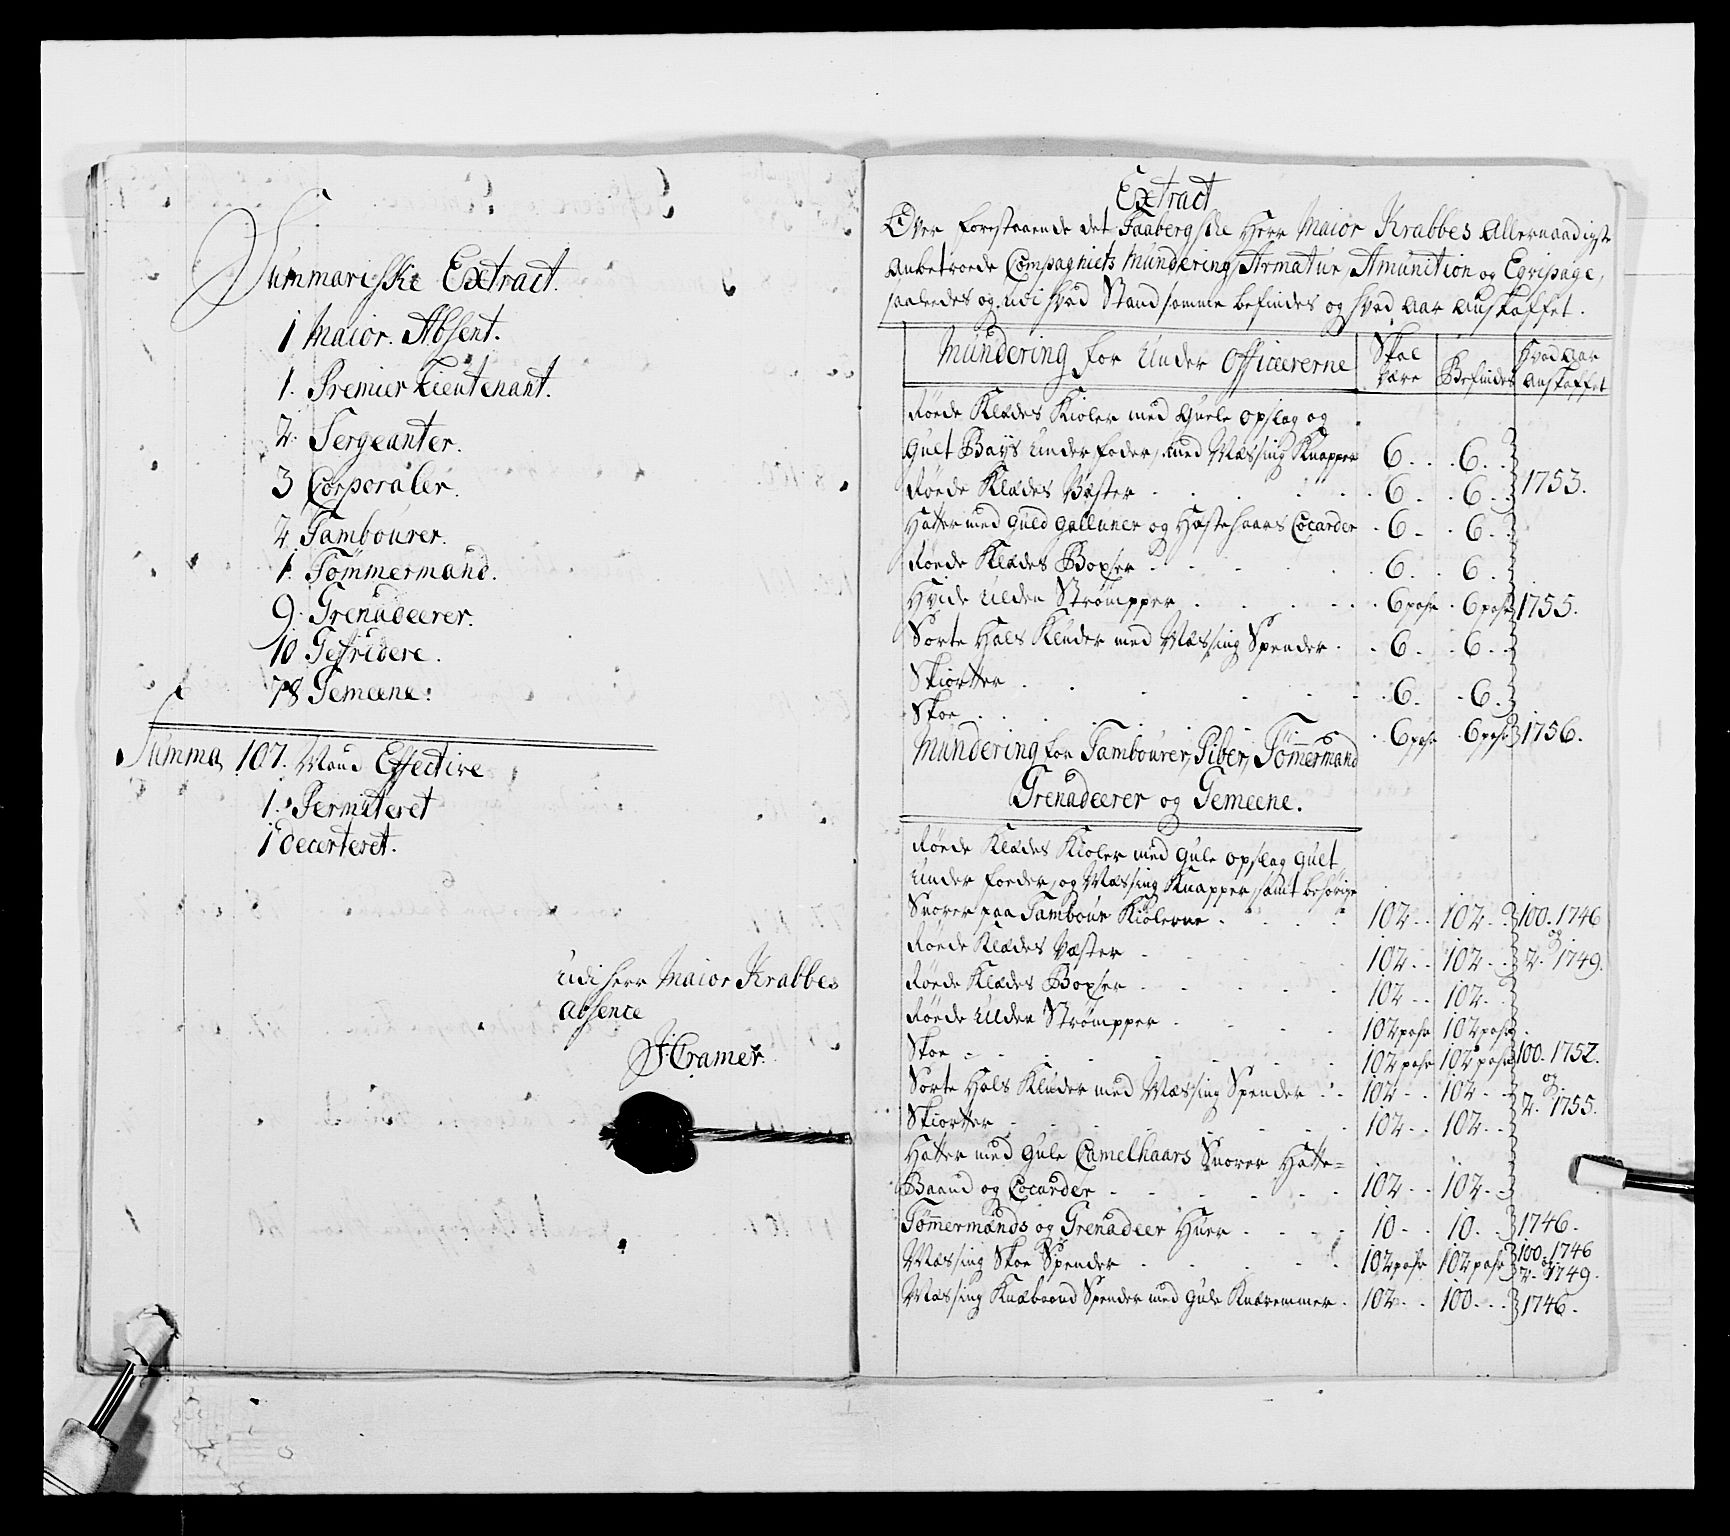 Summariske Extract.
1 Maior. Absent.
1. Premier Lieutenant.
2. Sergeanter.
3 Corporaler.
2 Tambourer.
1. Tømmermand.
9. Grenadeerer.
10 Gefridere.
78 Gemeene.
Summa, 107. Mand Effective
1. Permiteret
1 decerteret.
Udi Herr Maior Krabbes
Absence
J: Cramer.
Extract
Over forestaaende det Faabergske Herr Maior Krabbes Allernaadigste
Anbetroede Compagniets Mundering, Armatur, Amunition og Eqvipage,
saaledes og udi hvad Stand samme befindes og hvad Aar Anskaffet.
Mundering for Under Officererne
Skal være
Befindes
Hvad Aar Anskaffet
Røede Klædes Kioler med Guele Opslag og
Gult Bays Under foder, med Messing Knapper 6. 6.
Røede Klædes Væster 6. 6. 1753.
Hatter med Guld Galluner og Hæstehaars Cocarder 6. 6.
Røede Klædes Boxser 6. 6.
Hvide Ulden Strømpper 6 pahr 6 pahr 1755.
Sorte Hals Kluder med Messing Spender 6. 6.
Skiorter 6. 6.
Skoe 6 pahr 6 pahr 1756.
Mundering for Tambourer, Piber, Tømmermand
Grenadeerer og Gemeene.
Røede Klædes Kioler med Gule Opslag Gult
Under foeder, og Messing Knapper, samt behørige
Snorer paa Tambour Kiolerne 102 102 100. 1746
og
Røede Klædes Væster 102 102 2. 1749.
Røede Klædes Boxser 102 102
Røede Ulden Strømpper 102 pahr 102 pahr
Skoe 102 pahr 102 pahr 100. 1752.
og
Sorte Hals Kluder med Messing Spender 102 102 2. 1755.
Skiorter 102 102
Hatter med Gule Camelhaars Snorer Hatte=
Baand og Cocarder 102 102
Tømmermands og Grenadeer Huer 10 10 1746.
Messing Skoe Spender 102 pahr 102 pahr 100. 1746
og
2. 1749.
Messing Knæbaand Spender med Gule Knæremmer 102 100 1746.